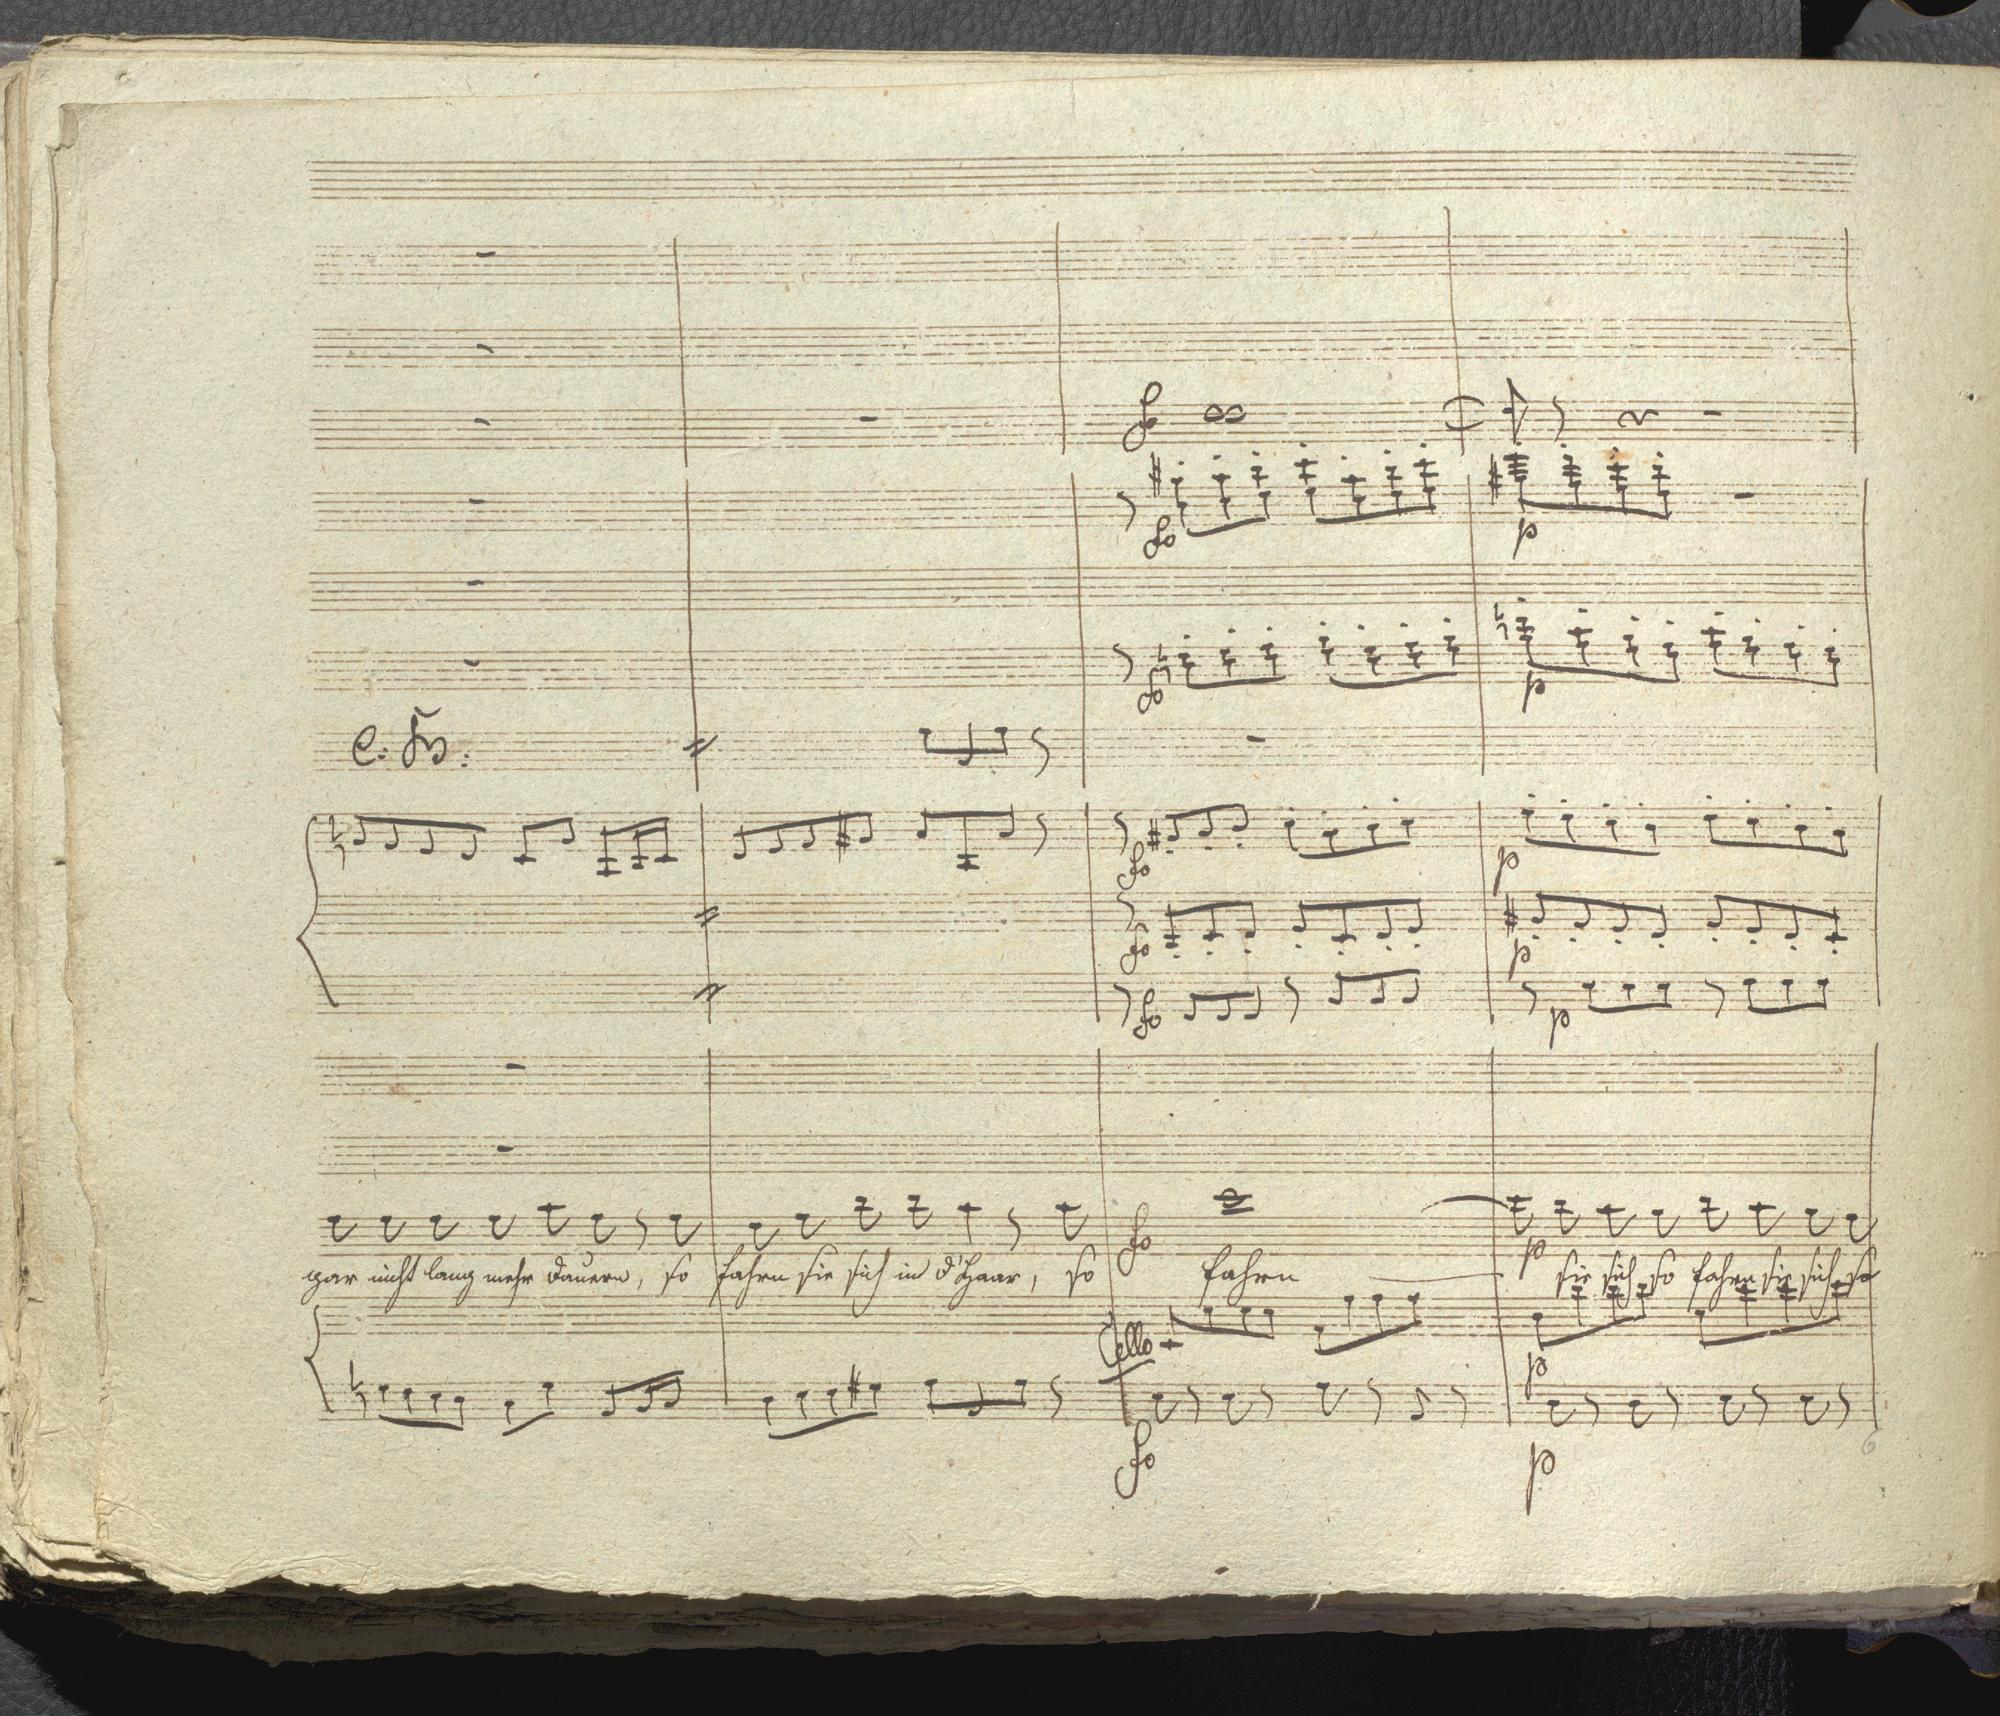 fo
fo
p
fo
p
fo
p
fo
p
fo
p
fo
p
gar nicht lang mehr dauern, so fahrn sie sich in d'Haar, so fahrn sie sich so fahrn sie sich so
Cello
p
fo
p
6